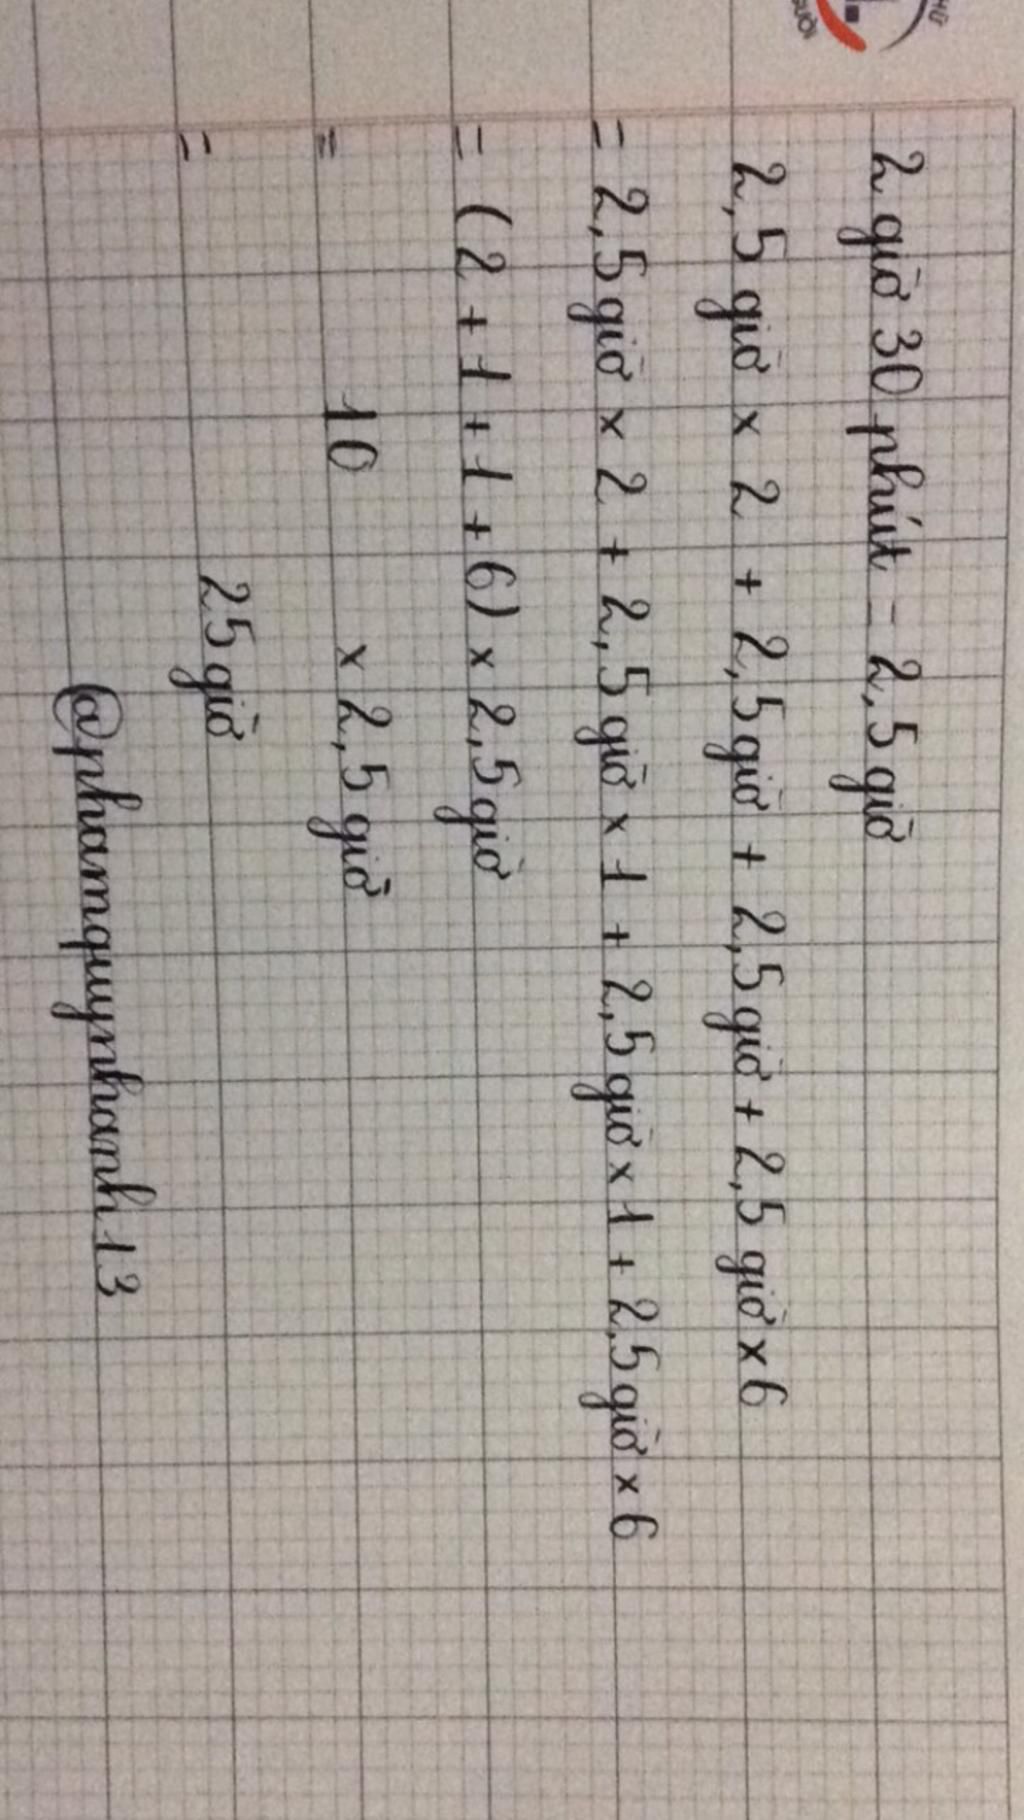 2 giờ 30 phút = 2,5 giờ
2,5 giờ x 2 + 2,5 giờ + 2,5 giờ + 2,5 giờ x 6
= 2,5 giờ x 2 + 2,5 giờ x 1 + 2,5 giờ x 1 + 2,5 giờ x 6
= (2 + 1 + 1 + 6) x 2,5 giờ
= 10 x 2,5 giờ
= 25 giờ
@phamquynhanh13